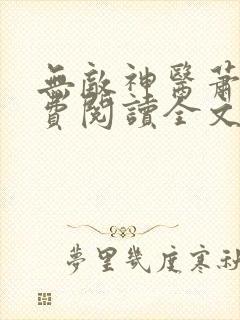 無敵神醫蕭
費閱讀全文
夢里幾度寒秋